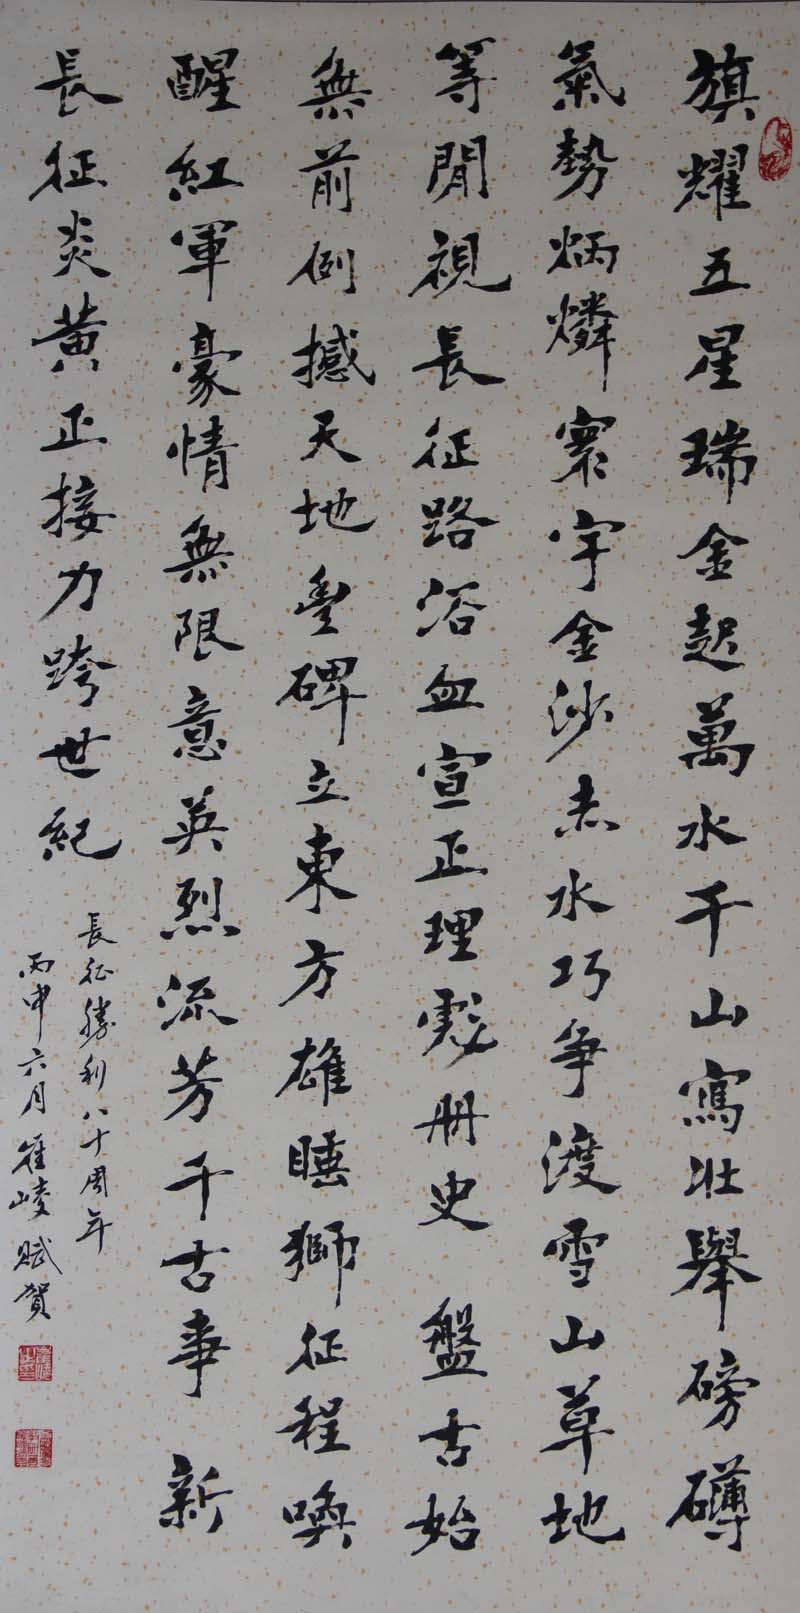 旗耀五星瑞金起萬水千山寫壯舉磅礴
氣勢炳燐寰宇金沙赤水巧爭渡雪山草地
等閒視長征路浴血宣正理彪册史 盤古始
無前例撼天地豊碑立東方雄睡獅征程喚
醒紅軍豪情無限意英烈流芳千古事 新
長征炎黄正接力跨世紀
長征勝利八十周年
丙申六月崔崚賦賀